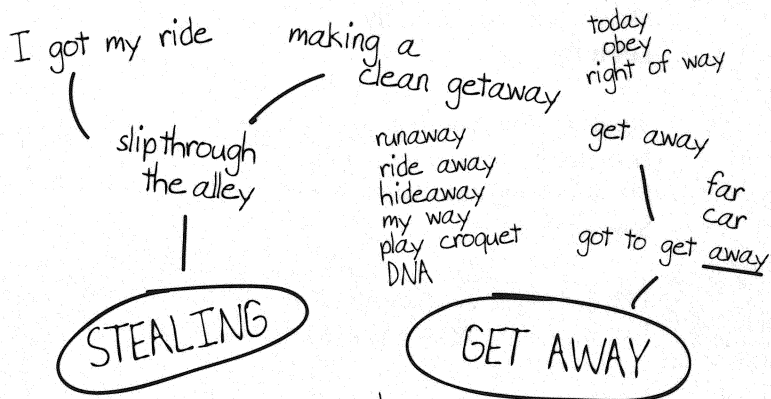 I got my ride
making a
clean getaway
today
obey
right of way
slip through
the alley
runaway
ride away
hideaway
my way
play croquet
DNA
get away
far
car
got to get away
STEALING
GET AWAY